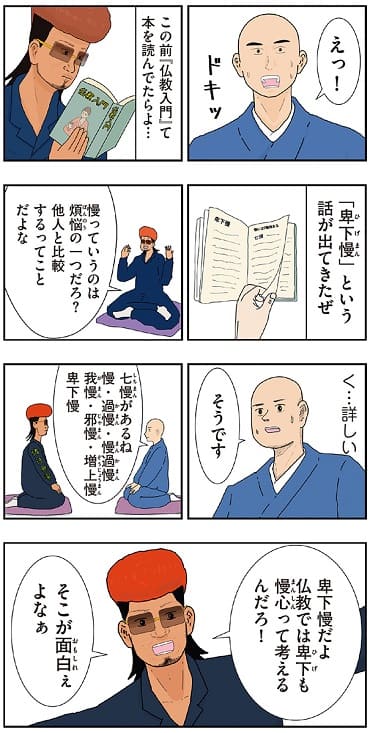 えっ!
ドキッ
この前『仏教入門』て
本を読んでたらよ…
「卑下慢」という
話が出てきたぜ
卑下慢
慢っていうのは
煩悩の一つだろ?
他人と比較
するってこと
だよな
く…詳しい
そうです
七慢があるね
慢・過慢・慢過慢
我慢・邪慢・増上慢
卑下慢
卑下慢だよ
仏教では卑下も
慢心って考える
んだろ!
そこが面白ぇ
よなぁ